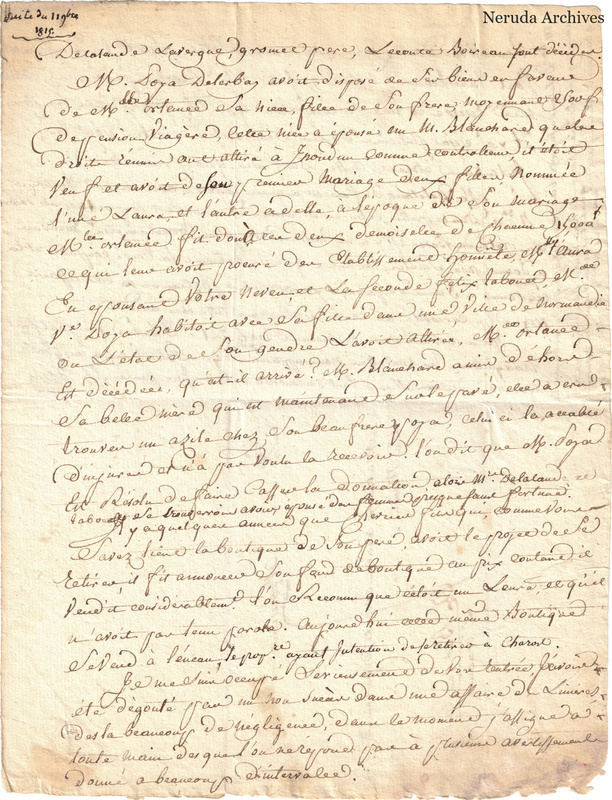 Suite du 11 9bre
1815.
Neruda Archives
Delalande Lavergne, gromet pere, Lecomte Boireau sont décidés.
M. Poya Delerbay avoit disposé de ses biens en faveur
de Mlle ortance Sa niece fille de Son frere, moyennant
de pension Viagère, Cette niece a épousé un M. Blanchard que les
droits réunis ont attiré à Issoudun comme controlleur, il étoit
Veuf et avoit de son premier Mariage deux filles Nommées
l'une Laura, et l'autre adelle, à l'époque de Son mariage
Mlle ortance fit don à ces deux demoiselles de chacune
ce qui leur avoit procuré des Etablissements honnête, Mlle Laura
En épousant Votre Neveu, et La Seconde felix tabouet, Mde
Ve Poya habitoit avec Sa fille dans une Ville de Normandie
ou L'état de Son gendre L'avoit attirée, Mde ortance
Est décédée, qu'est-il arrivé? M. Blanchard a mis déhors
Sa belle mère qui est maintenant Sur le pavé, elle a cru
trouver un azile chez Son beau frere poya, celui ci l'a accablée
d'injures et n'a pas Voulu la recevoir. l'on dit que M. Poya
Est Résolu de faire Casser la donnation, alors Mrs Delalande et
tabouet Se trouverons avoir épousé des femmes presque sans fortune.
Il y a quelques années que comme vous
Savez tient la boutique de Son pere, avoit le projet de Se
retirer, il fit annoncer Son fond de boutique au prix coutant, il
Vendit considérablemt. l'on Reconnu que c'étoit un Leure, et qu'il
n'avoit pas tenu parole. Aujourdhui cette même Boutique
Se Vend à l'encan, le propre ayant Intention de Se retirer à Charost.
Je me Suis occupé Serieusement de Vos rentes, J'avois
été dégouté par un non Succès dans une affaire de Limeres,
Est la beaucoup de négligence, dans le moment j'assigne a
toute main des que l'on ne répond pas à plusieurs avertissements
donné a beaucoup d'intervalles.